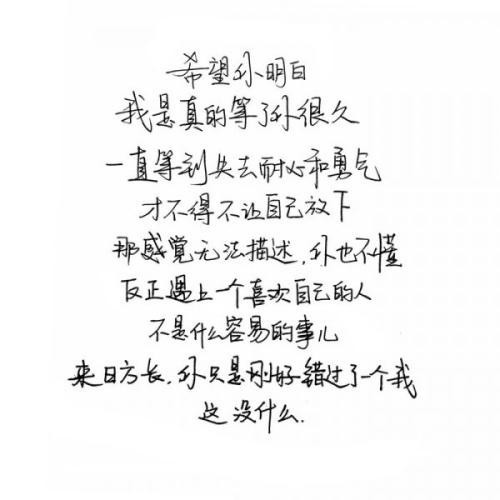 希望你明白
我是真的等了你很久
一直等到失去耐心和勇气
才不得不让自己放下
那感觉无法描述,你也不懂
反正遇上一个喜欢自己的人
不是什么容易的事儿
来日方长,你只是刚好错过了一个我
这没什么.